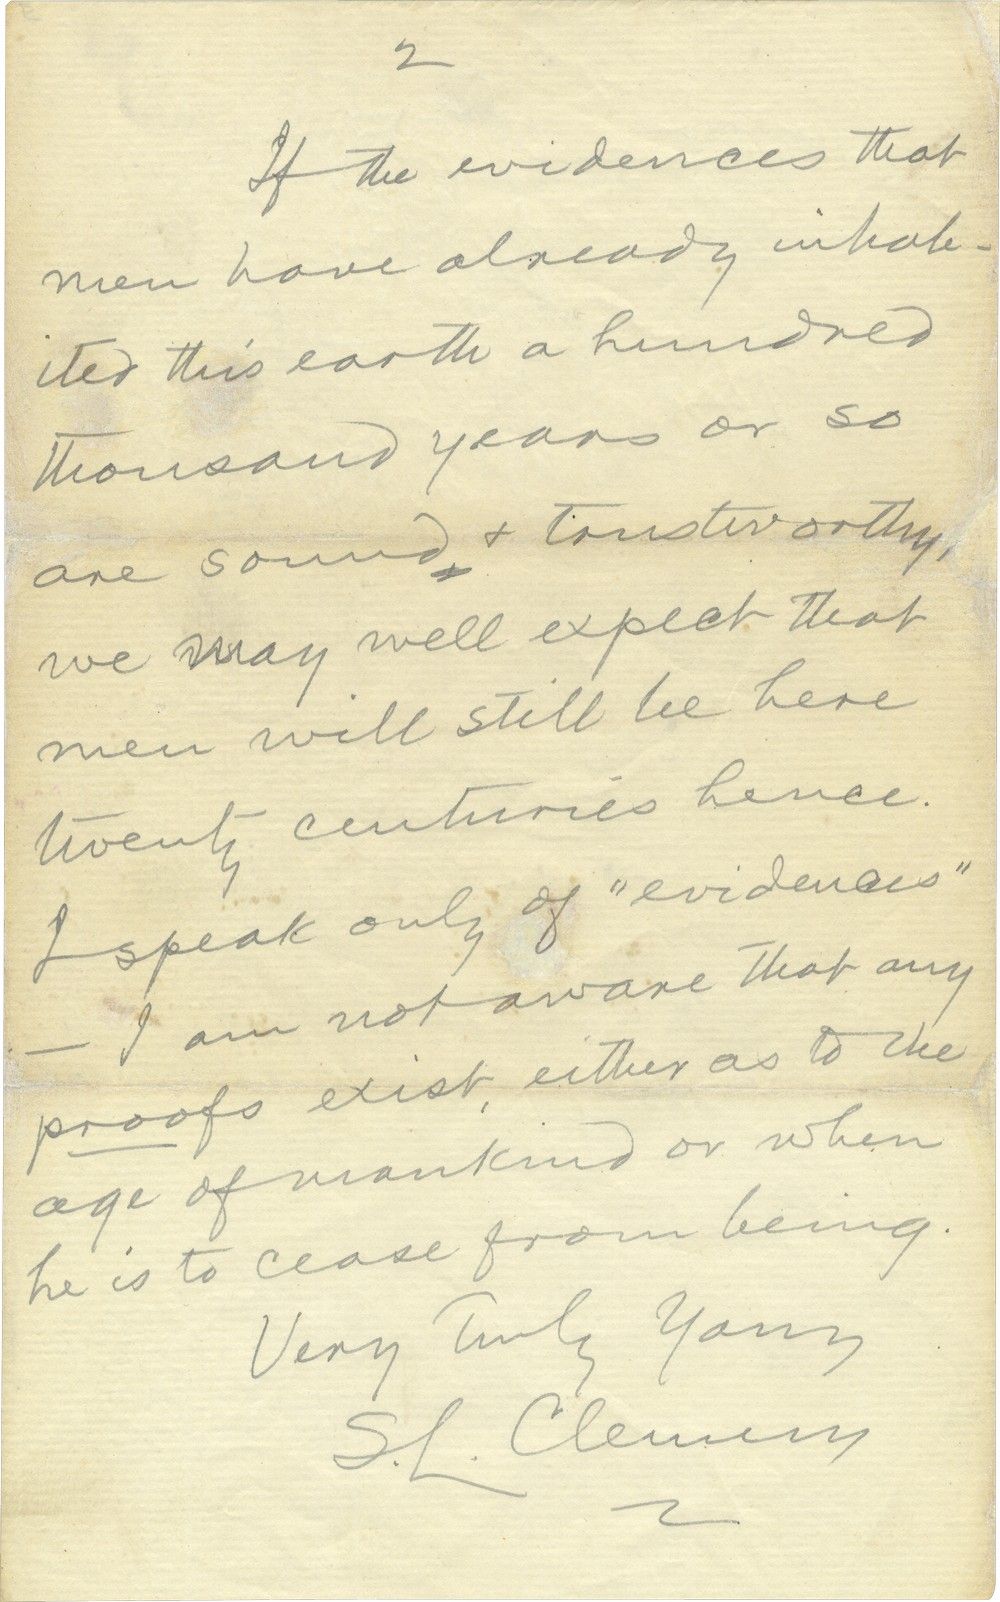 2
If the evidences that
men have already inhab-
ited this earth a hundred
thousand years or so
are sound & trustworthy,
we may well expect that
men will still be here
twenty centuries hence.
I speak only of "evidences"
— I am not aware that any
proofs exist, either as to the
age of mankind or when
he is to cease from being.
Very Truly Yours
S. L. Clemens